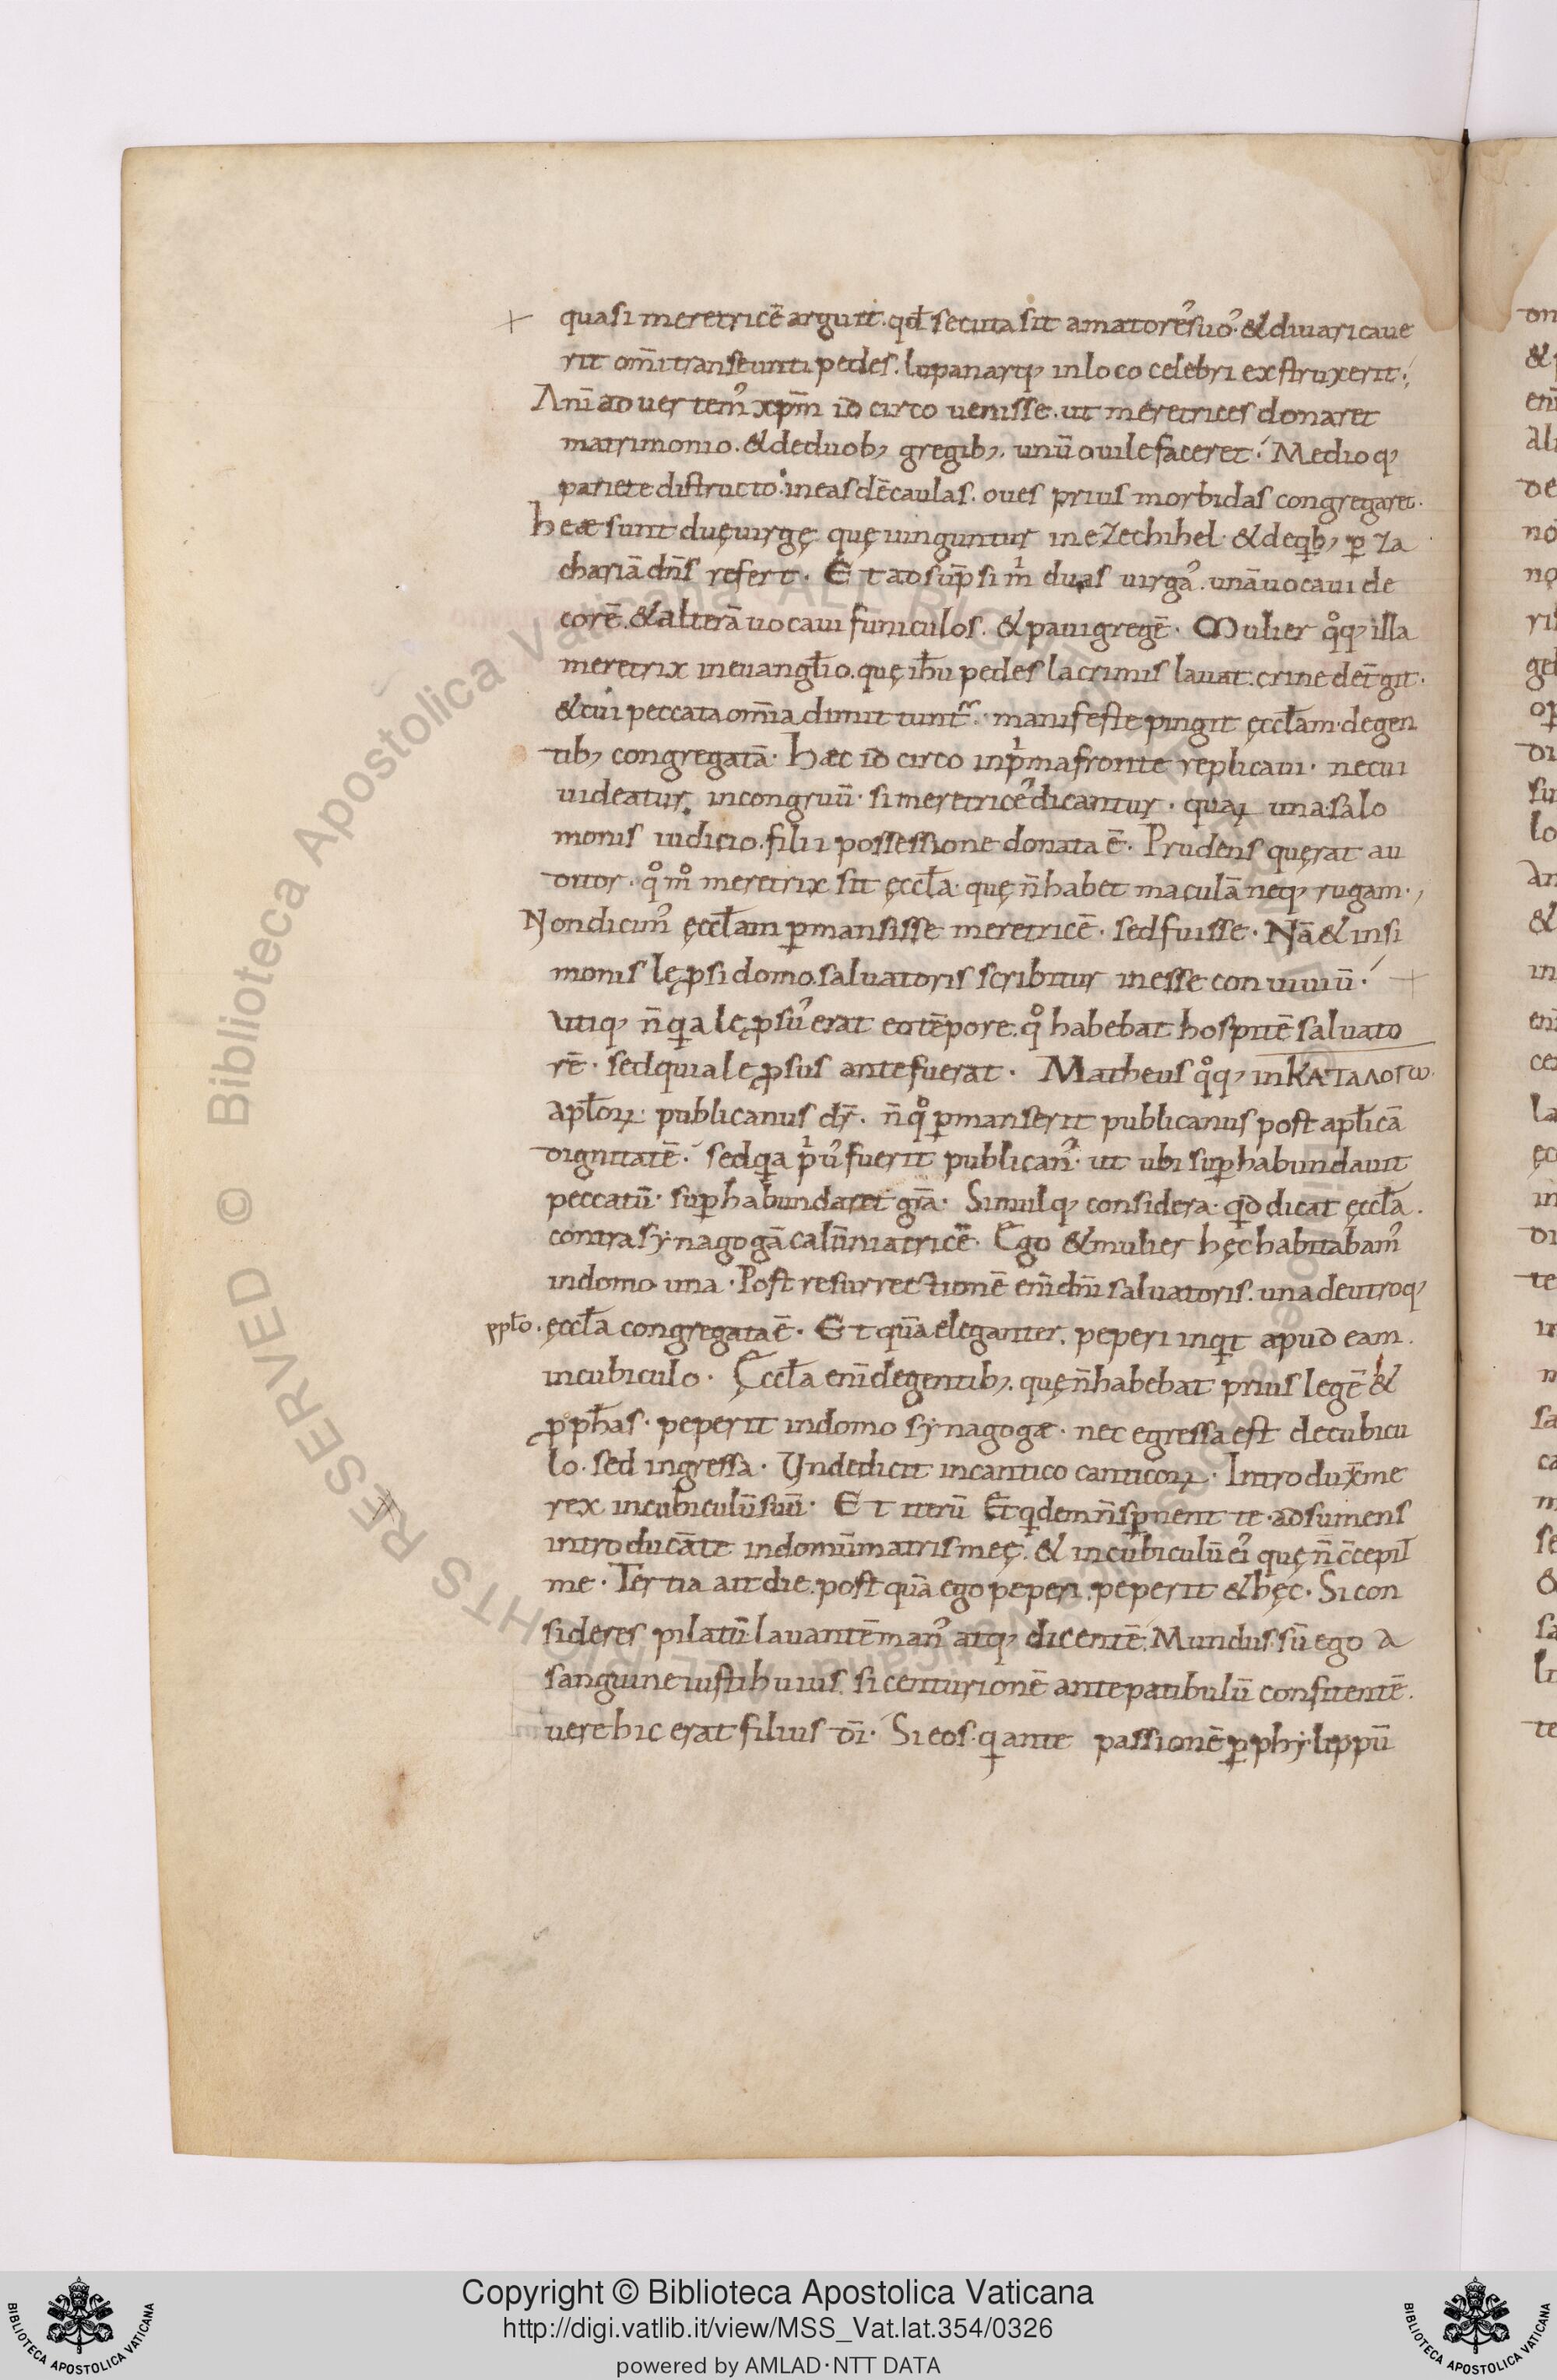 quasi meretricē arguit. qđ secuta sit amatores̓ suo᾽. & diuaricaue
rit om̄i transeunti pedes. lupanarq; in loco celebri exstruxerit.
Anī aduertem᾽ xp̄m idcirco uenisse. ut meretrices donaret
matrimonio. & de duob; gregib;. unū ouile faceret. Medioq;
pariete distructo. in easdē caulas. oues prius morbidas congregaret.
heæ sunt duę uirgę quę iunguntur in ezechihel. & de qib; ꝑ za
chariā dn̄s refert. Et adsūpsi m̍ duas uirga᾽. unā uocaui de
corē. & alterā uocaui funiculos. & paui gregē. Mulier qͦq; illa
meretrix in euangł̄io. quę ih̄u pedes lacrimis lauat. crine det̄git.
& cui peccata om̄ia dimittunt᷑. manifeste pingit ęccł̄am. de gen
tib; congregatā. Haec idcirco in p̍ma fronte replicaui. ne cui
uideatur incongruū. si meretrice᾽ dicantur. quaꝝ una salo
monis iudicio. filii possessione donata ē. Prudens quęrat au
ditor. qͦmͦ meretrix sit ęccł̄a. quę n̄ habet maculā neq; rugam.
Non dicim᾽ ęccł̄am ꝑmansisse meretricē. sed fuisse. Nā & in si
monis lęꝓsi domo. saluatoris scribitur inesse conuiuiū.
Utiq; n̄ qa lęꝓsu᾽ erat eo tēpore. qͦ habebat hospitē saluato
rē. sed quia lęꝓsus ante fuerat. Matheus qͦq; in ΚΑΤΑΛΟΓω
apł̄oꝝ. publicanus dr̄. n̄ qͦ ꝑmanserit publicanus post apł̄icā
dignitatē. sed qa p̍u᾽ fuerit publican᾽. ut ubi suꝑhabundauit
peccatū. suꝑhabundaret gr̄a. Simulq; considera. qd dicat ęccł̄a.
contra synagogā calūniatricē. Ego & mulier hęc habitabam᾽
in domo una. Post resurrectionē enī dn̄i saluatoris. una de utroq;
ppł̄o. ęccł̄a congregata ē. Et quā eleganter. peperi inqt apud eam.
in cubiculo. Ęccł̄a enī de gentib;. quę n̄ habebat prius legē &
ꝓph̄as. peperit in domo synagogæ. nec egressa est de cubicu
lo. sed ingressa. Unde dicit in cantico canticoꝝ. Introdux̄ me
rex in cubiculū suū. Et iterū Et qdem n̄ sꝑnent te. adsumens
introducā te in domū matris meę. & in cubiculū ei᾽ quę n̄ c̄cepit
me. Tertia ait die. post quā ego peperi. peperit & hęc. Si con
sideres pilatū lauantē man᾽ atq; dicentē. Mundus sū ego a
sanguine iusti huius. si centurionē ante patibulū confitentē.
uere hic erat filius dī. Si eos. qi ante passionē ꝑ phylippū
Copyright © Biblioteca Apostolica Vaticana
http://digi.vatlib.it/view/MSS_Vat.lat.354/0326
powered by AMLAD·NTT DATA